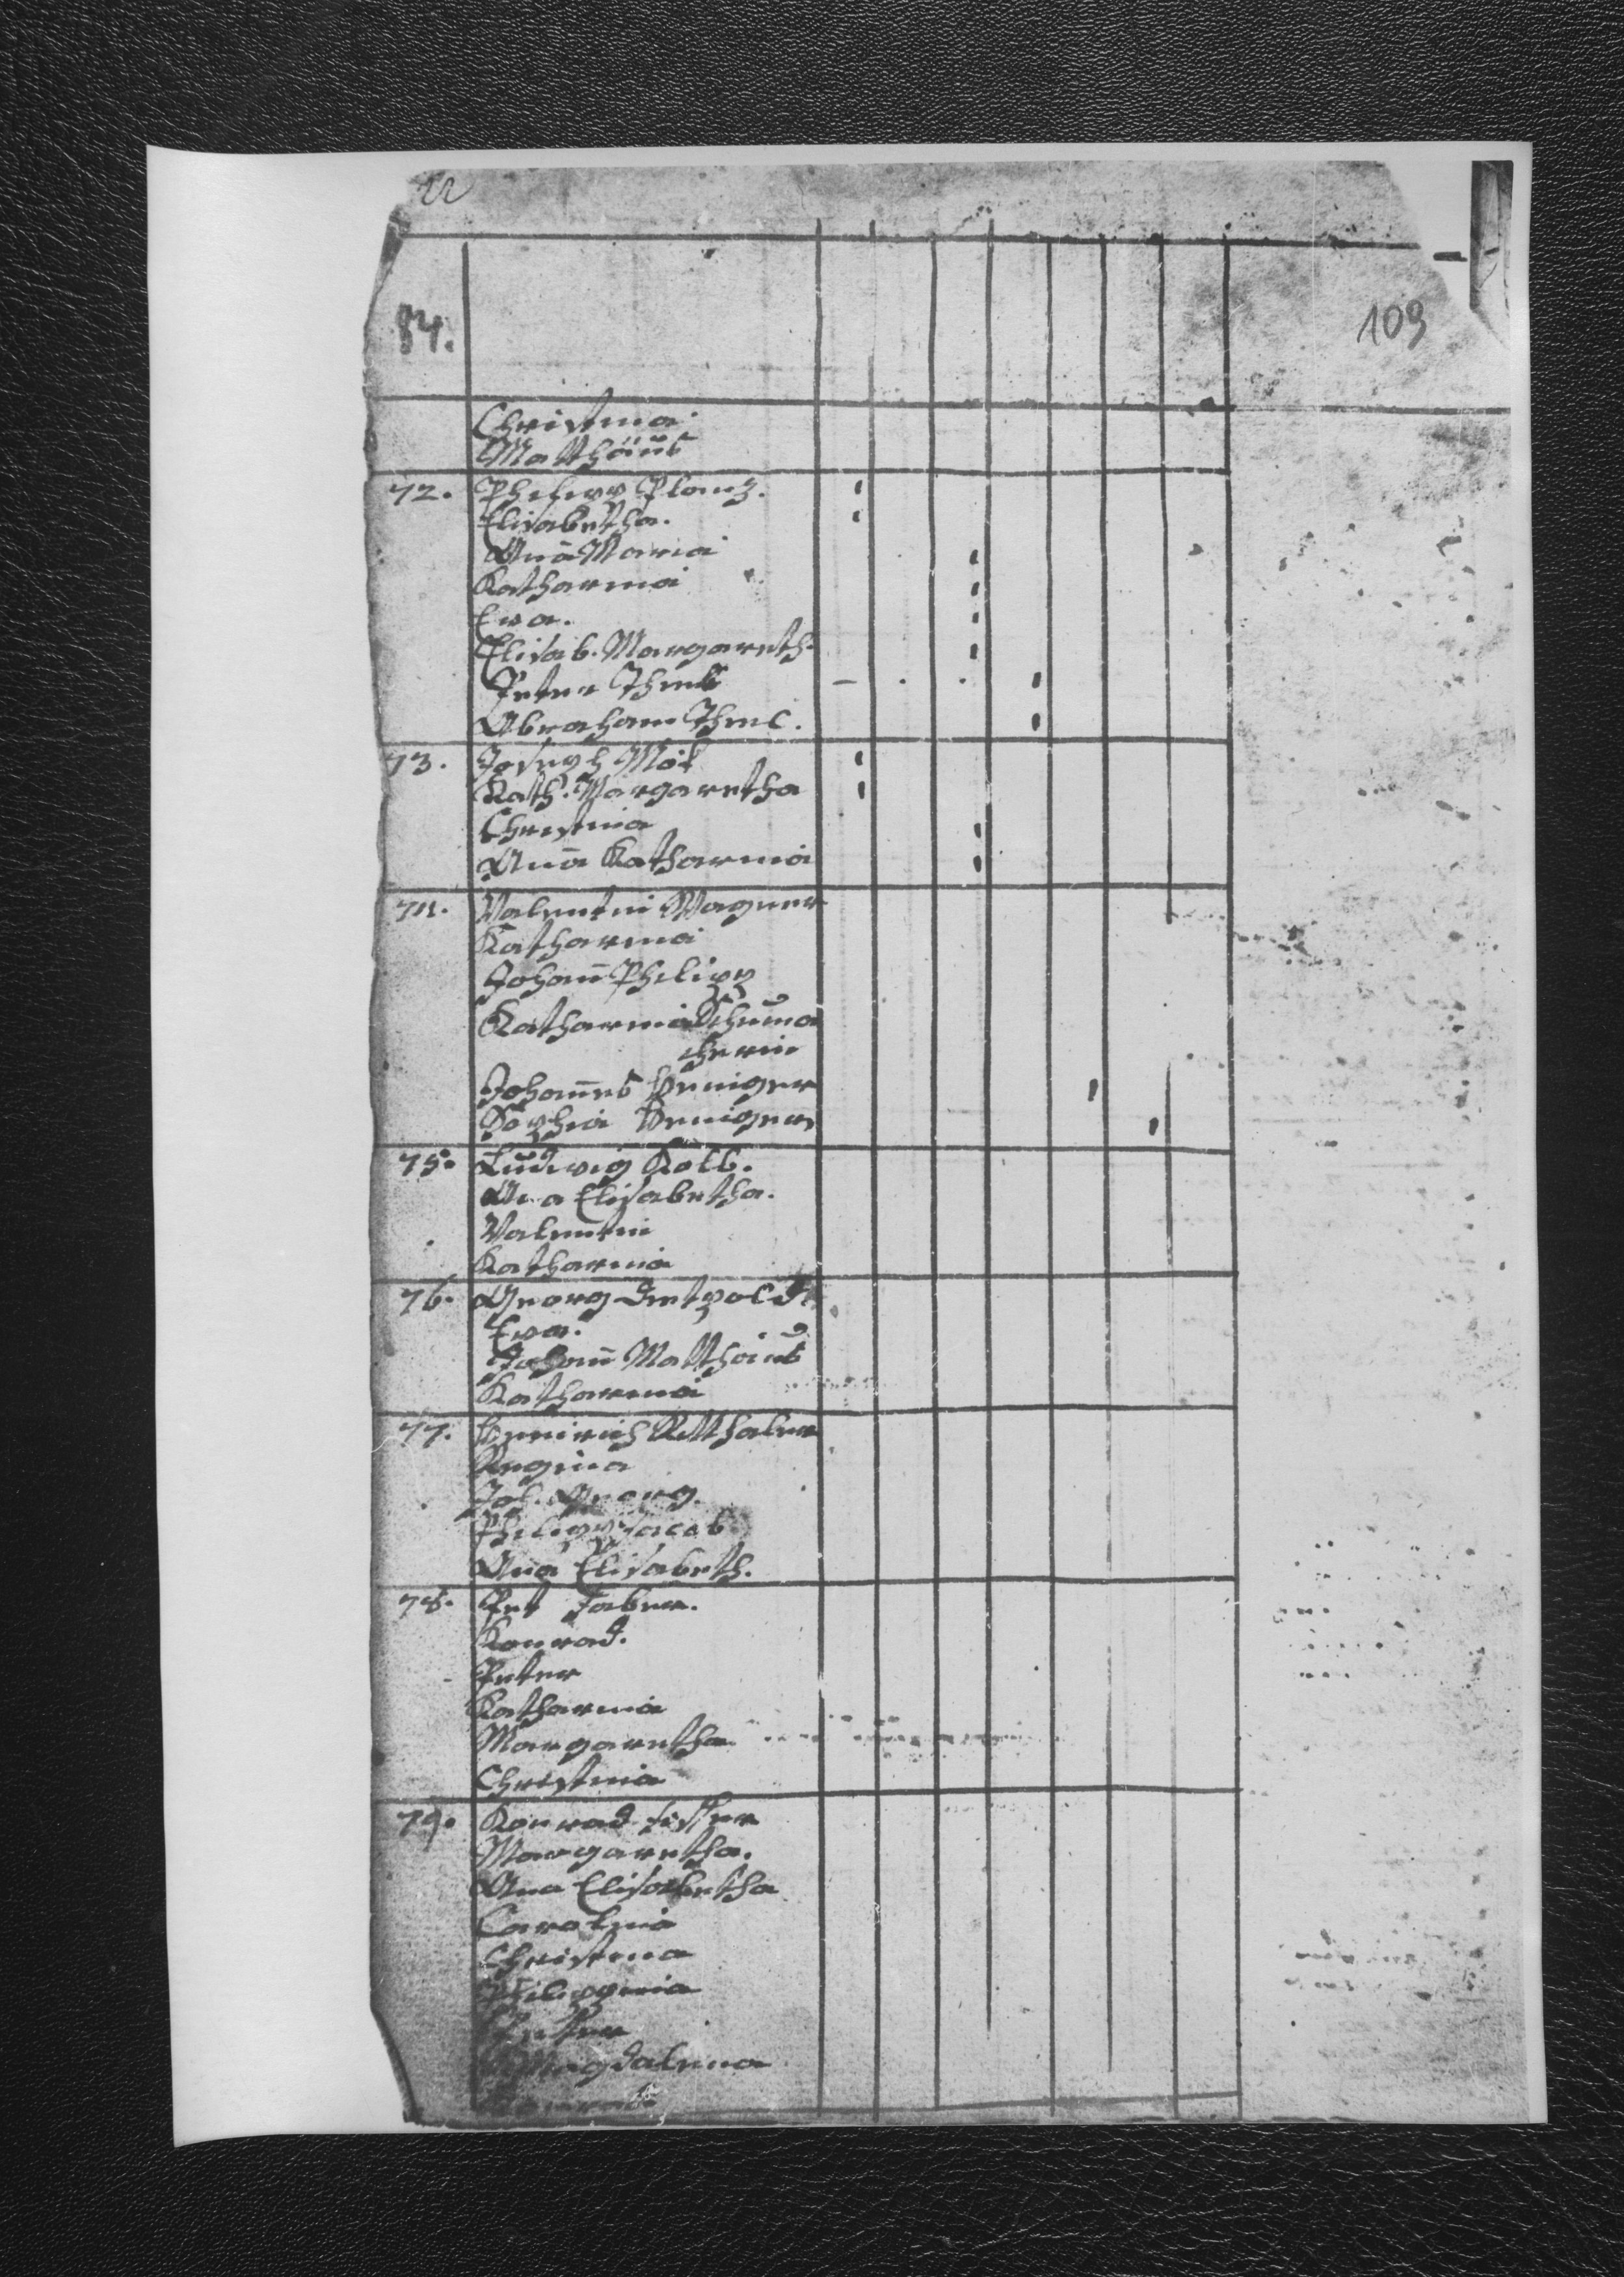 22
84.
109
Christina
Matthäus
72. Philipp Planz.
Elisabetha.
Ana Maria
Katharina
Eva.
Elisab. Margareth.
Peter
Abraham
73. Joseph
Kath. Margaretha
Christina
Anna Katharina
74. Valentin Wagner
Katharina
Johann Philipp
Katharina Schuma
cherin
Johannes Heniger
Sophia Heniger
75. Ludwig Kolb.
Ana Elisabetha.
Valentin
Katharina
76. Georg
Eva.
Johann Matthäus
Katharina
77. Heinrich
Regina
Joh. Georg.
Philipp Jacob
Ana Elisabeth.
78. Pet Faber.
Konrad.
Peter
Katharina
Margaretha
Christina
79. Konrad
Margaretha.
Ana Elisabetha
Carolina
Christina
Philippina
Peter
Magdalena